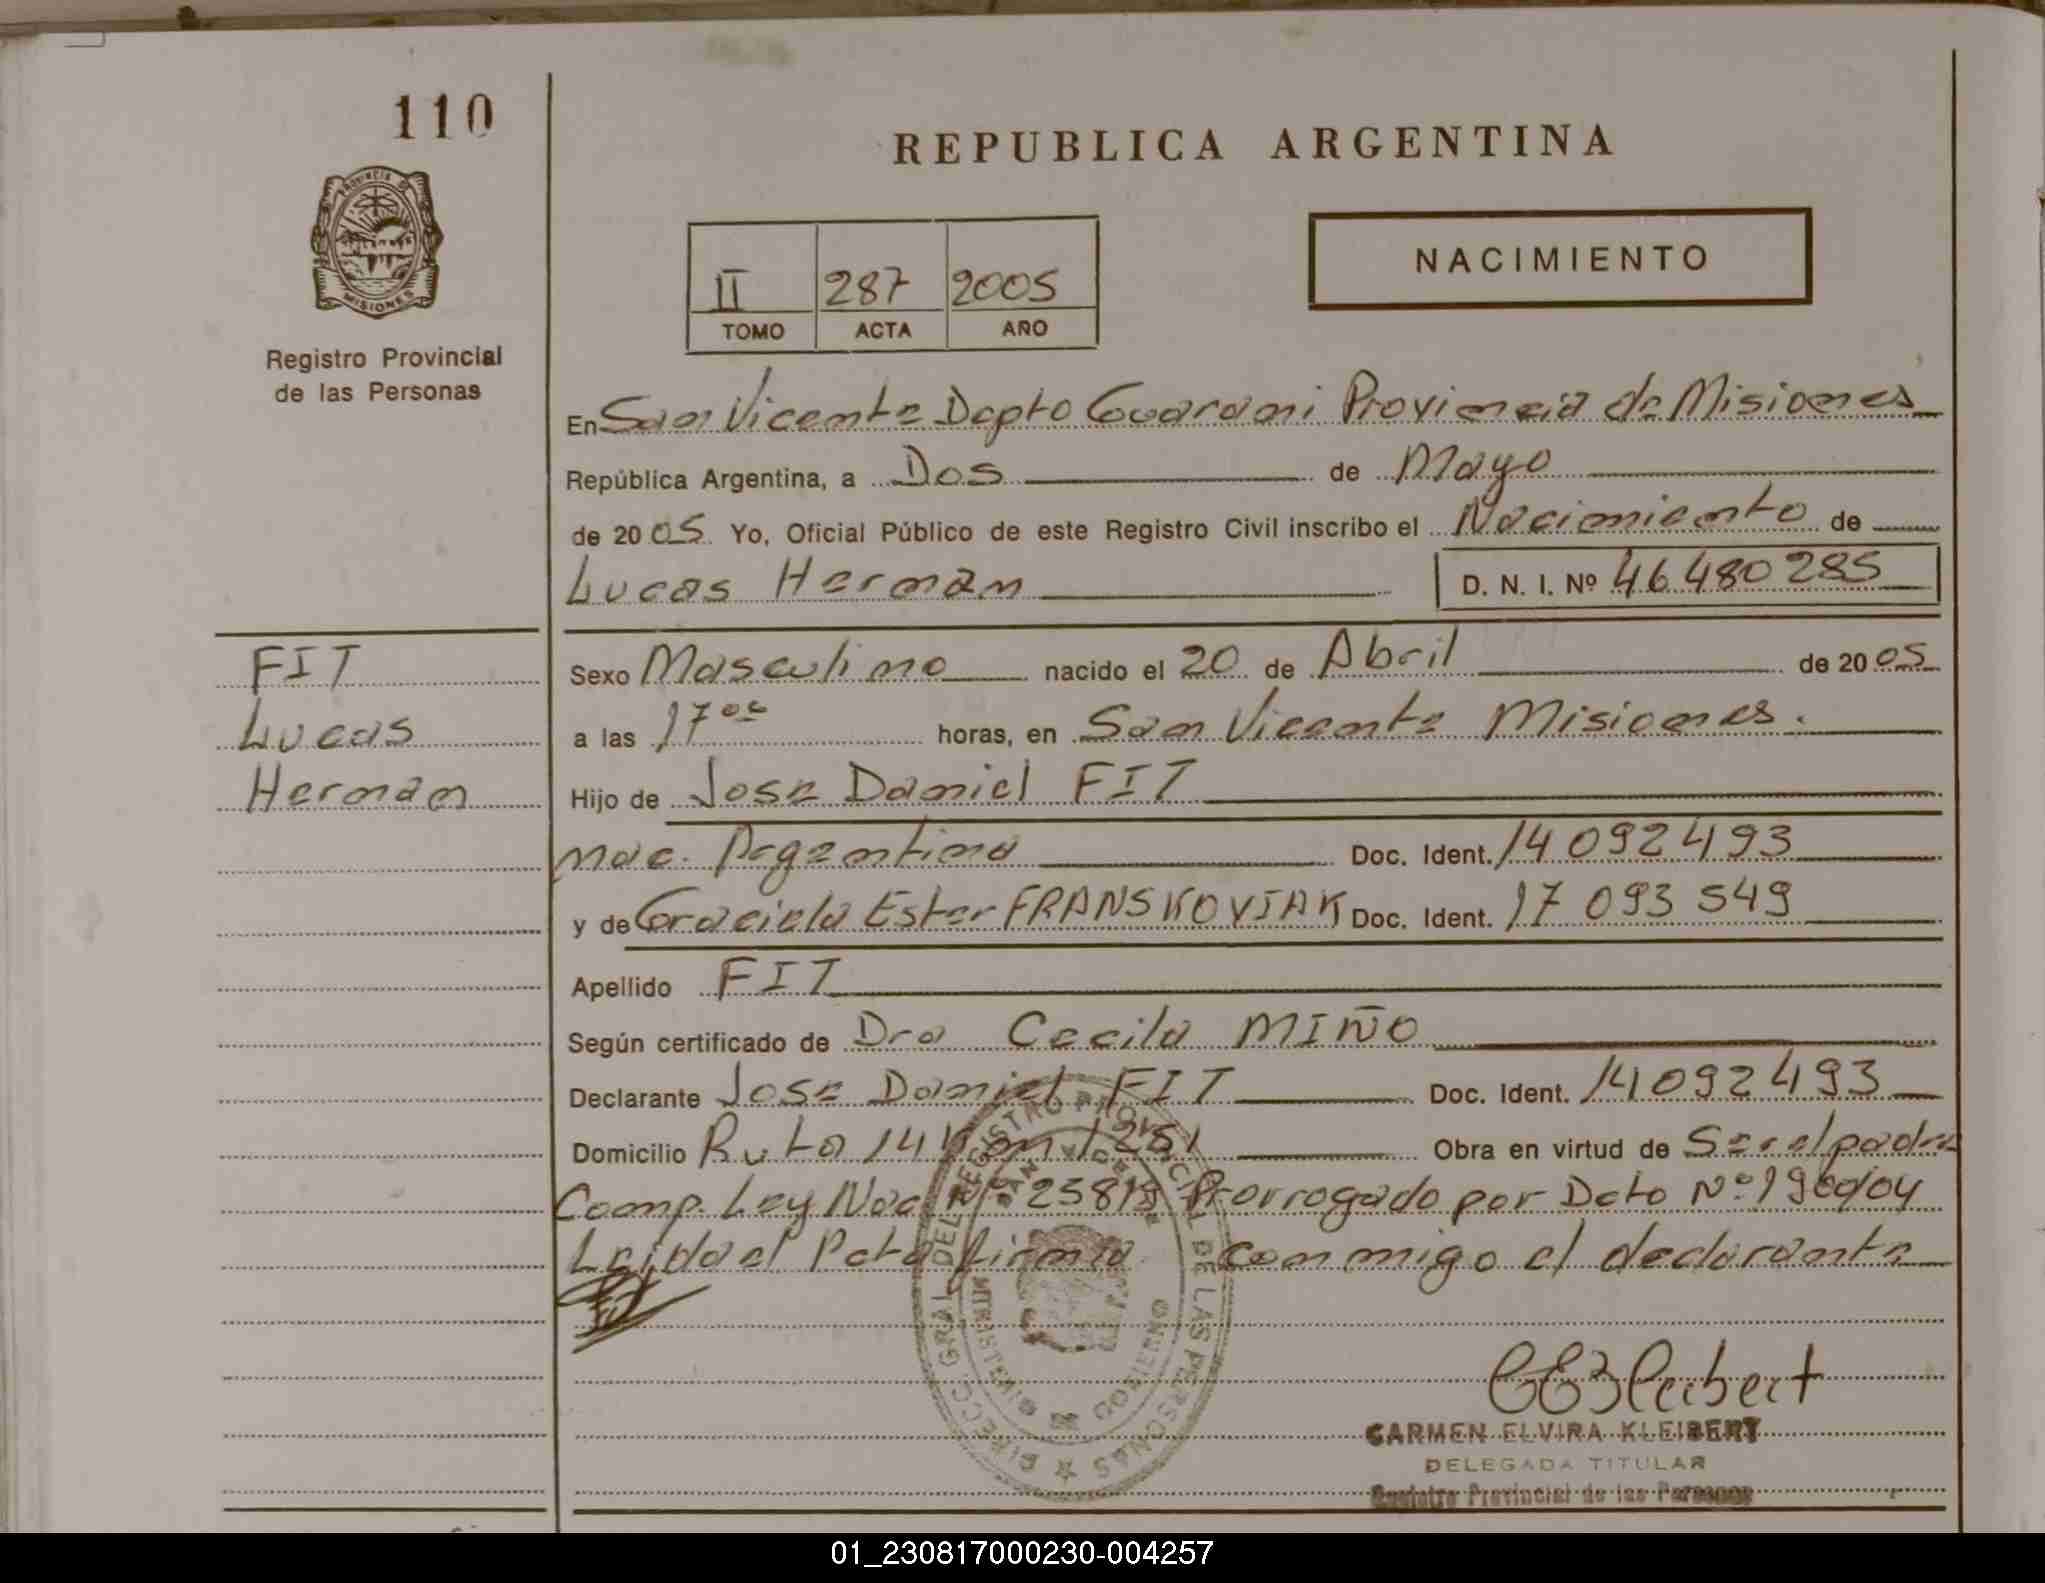 110
REPUBLICA ARGENTINA
PROVINCIA DE
MISIONES
Registro Provincial
de las Personas
II 287 2005
TOMO ACTA AÑO
NACIMIENTO
En San Vicente Depto Guarani Provincia de Misiones
República Argentina, a Dos de Mayo
de 2005 Yo, Oficial Público de este Registro Civil inscribo el Nacimiento de
Lucas Hernan D. N. I. Nº 46480285
FIT
Lucas
Hernan
Sexo Masculino nacido el 20 de Abril de 2005
a las 17 oo horas, en San Vicente Misiones.
Hijo de Jose Daniel FIT
nac. Argentina Doc. Ident. 14 092 493
y de Graciela Ester FRANSKOVIAK Doc. Ident. 17 093 549
Apellido FIT
Según certificado de Dra Cecila MIÑO
Declarante Jose Daniel FIT Doc. Ident. 14092493
Domicilio Ruta 14 Km 1251 Obra en virtud de Ser el padre
Comp. Ley Nac Nº Prorrogado por Dcto Nº
Leida el Acta firma conmigo el declarante
DIRECC. GRAL. DEL REGISTRO PROVINCIAL DE LAS PERSONAS
SAN VICENTE
MINISTERIO GOBIERNO
CARMEN ELVIRA KLEIBERT
DELEGADA TITULAR
Registro Provincial de las Personas
01_230817000230-004257